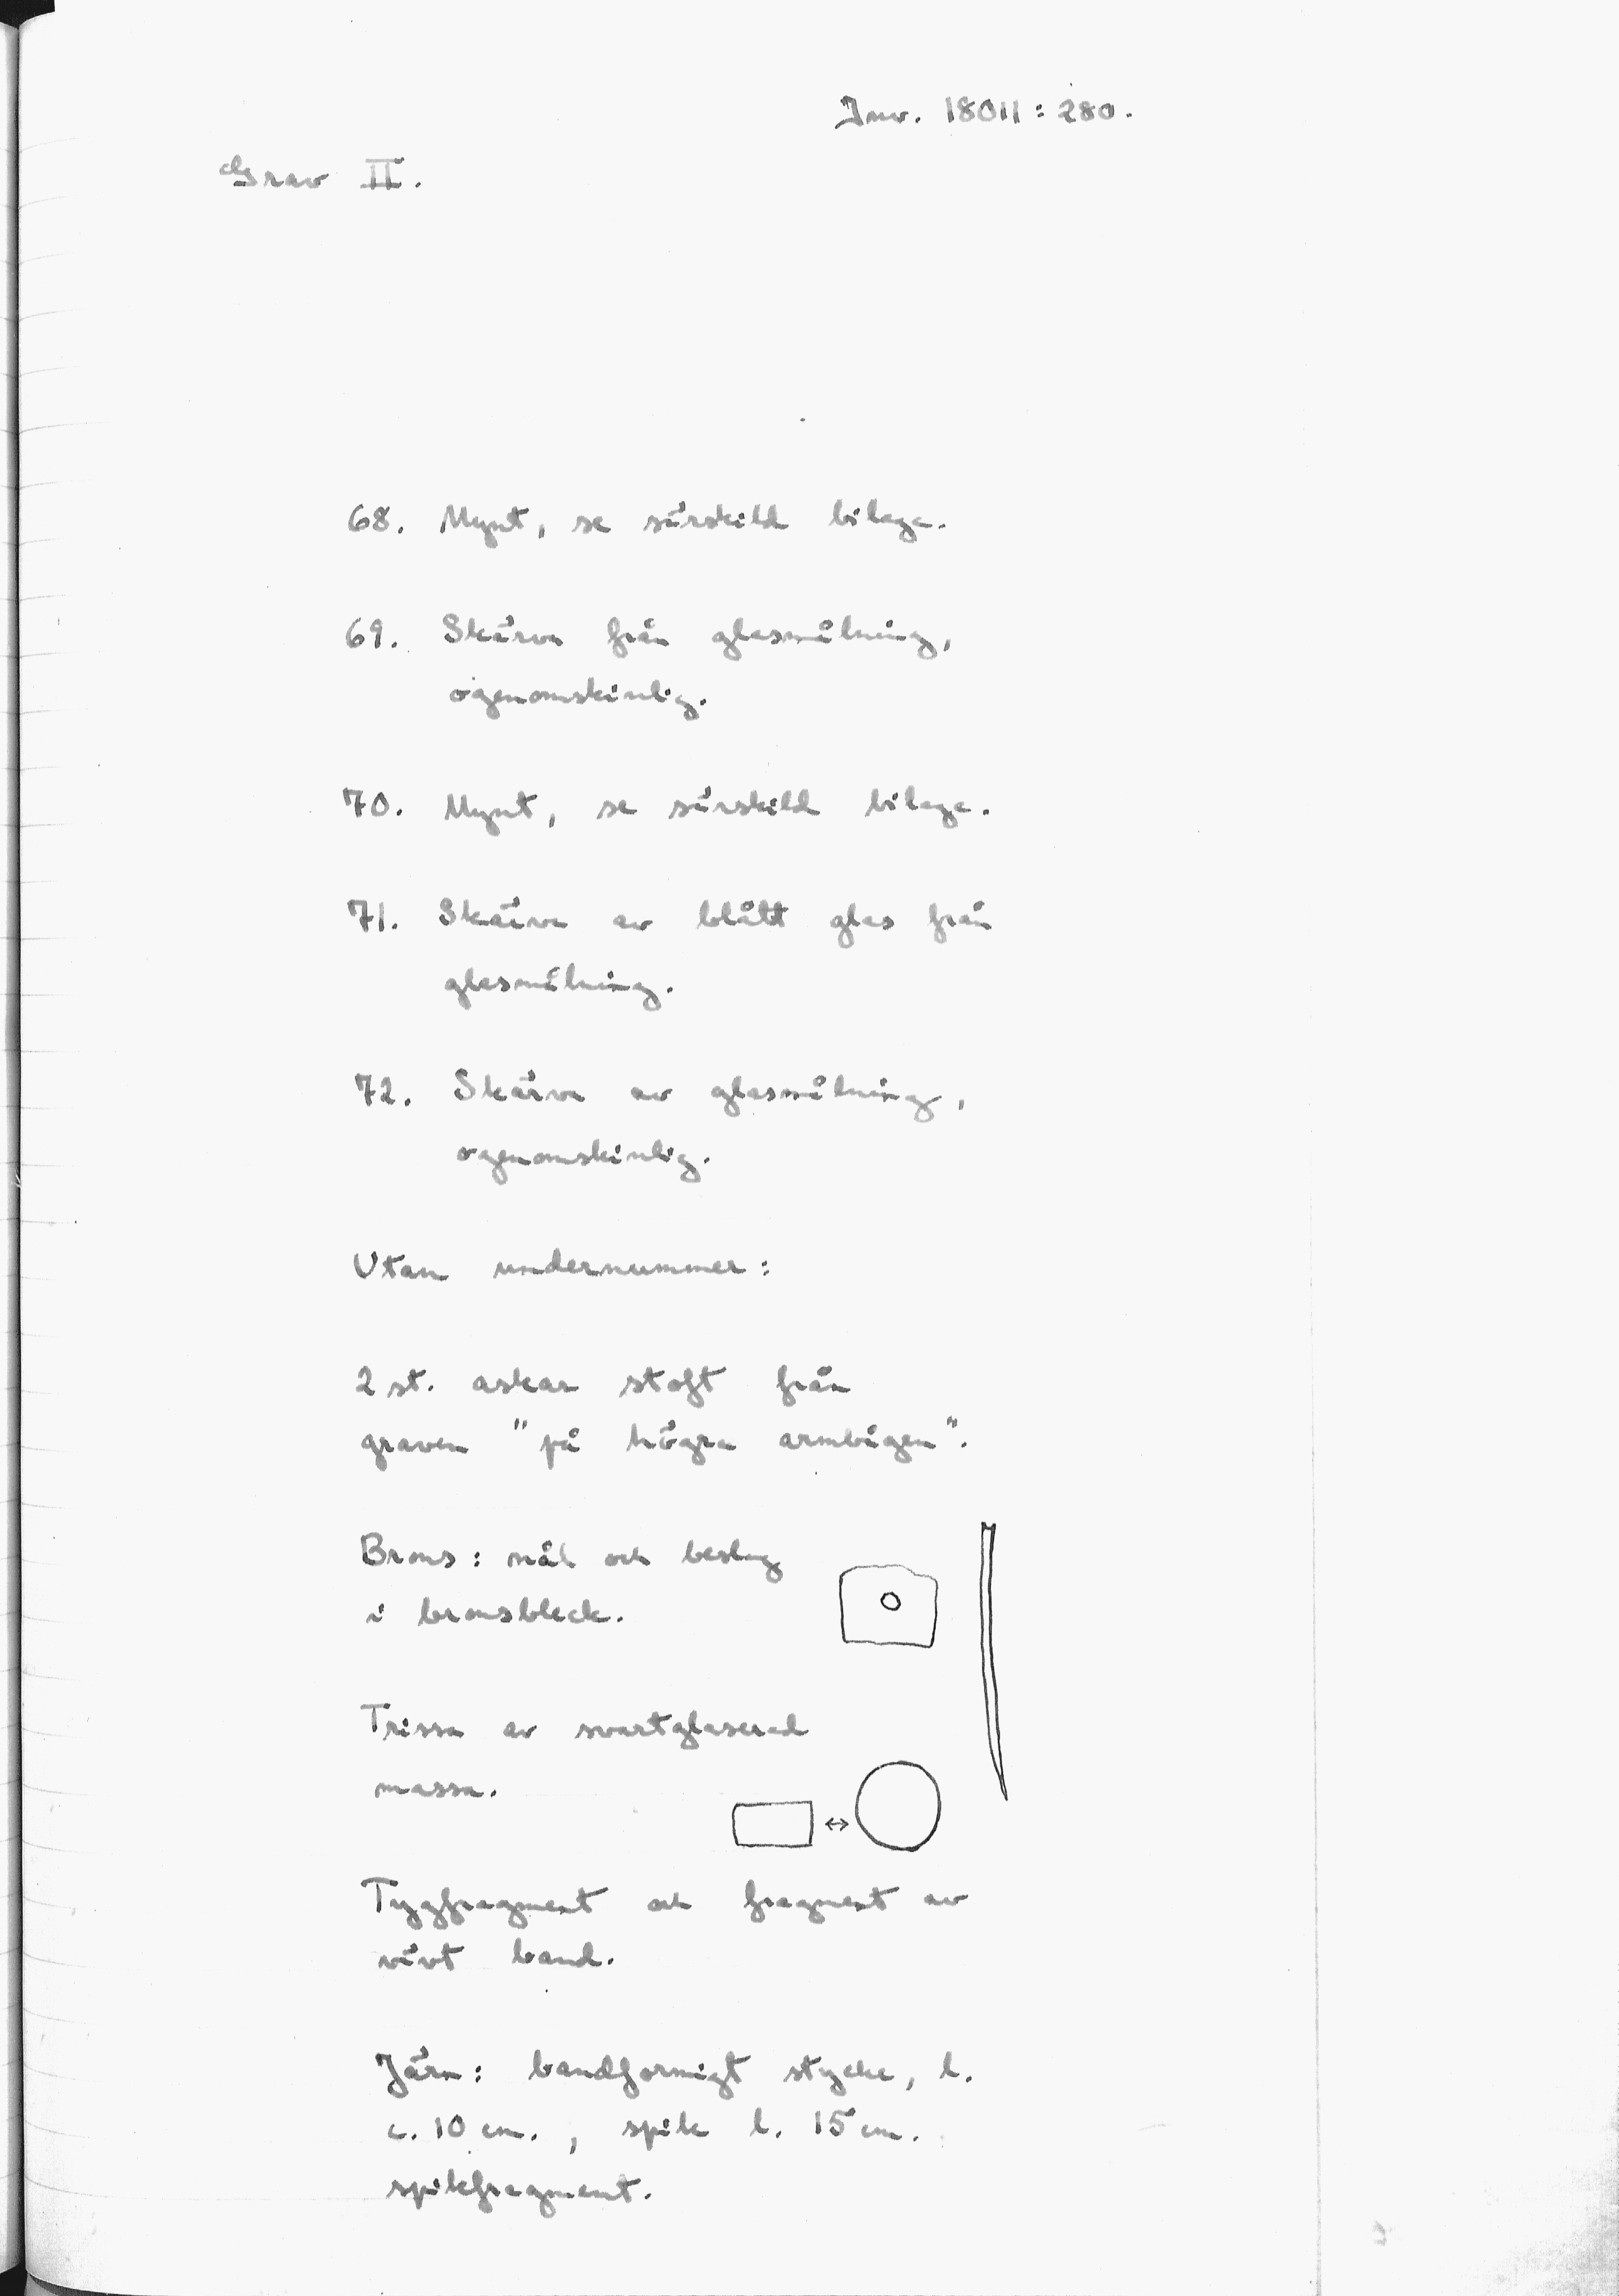 Inv. 18011:280.
Grav II.
68. Mynt, se särskild bilaga.
69. Skärva från glasmålning,
ogenomskinlig.
70. Mynt, se särskild bilaga.
71. Skärva av blått glas från
glasmålning.
72. Skärva av glasmålning,
ogenomskinlig.
Utan undernummer:
2 st. askar stoft från
graven "på högra armbågen".
Brons: nål och beslag
i bronsbleck.
Trissa av svartglaserad
massa.
Tygfragment och fragment av
vävt band.
Järn: bandformigt stycke, l.
c. 10 cm., spik l. 15 cm.
spikfragment.